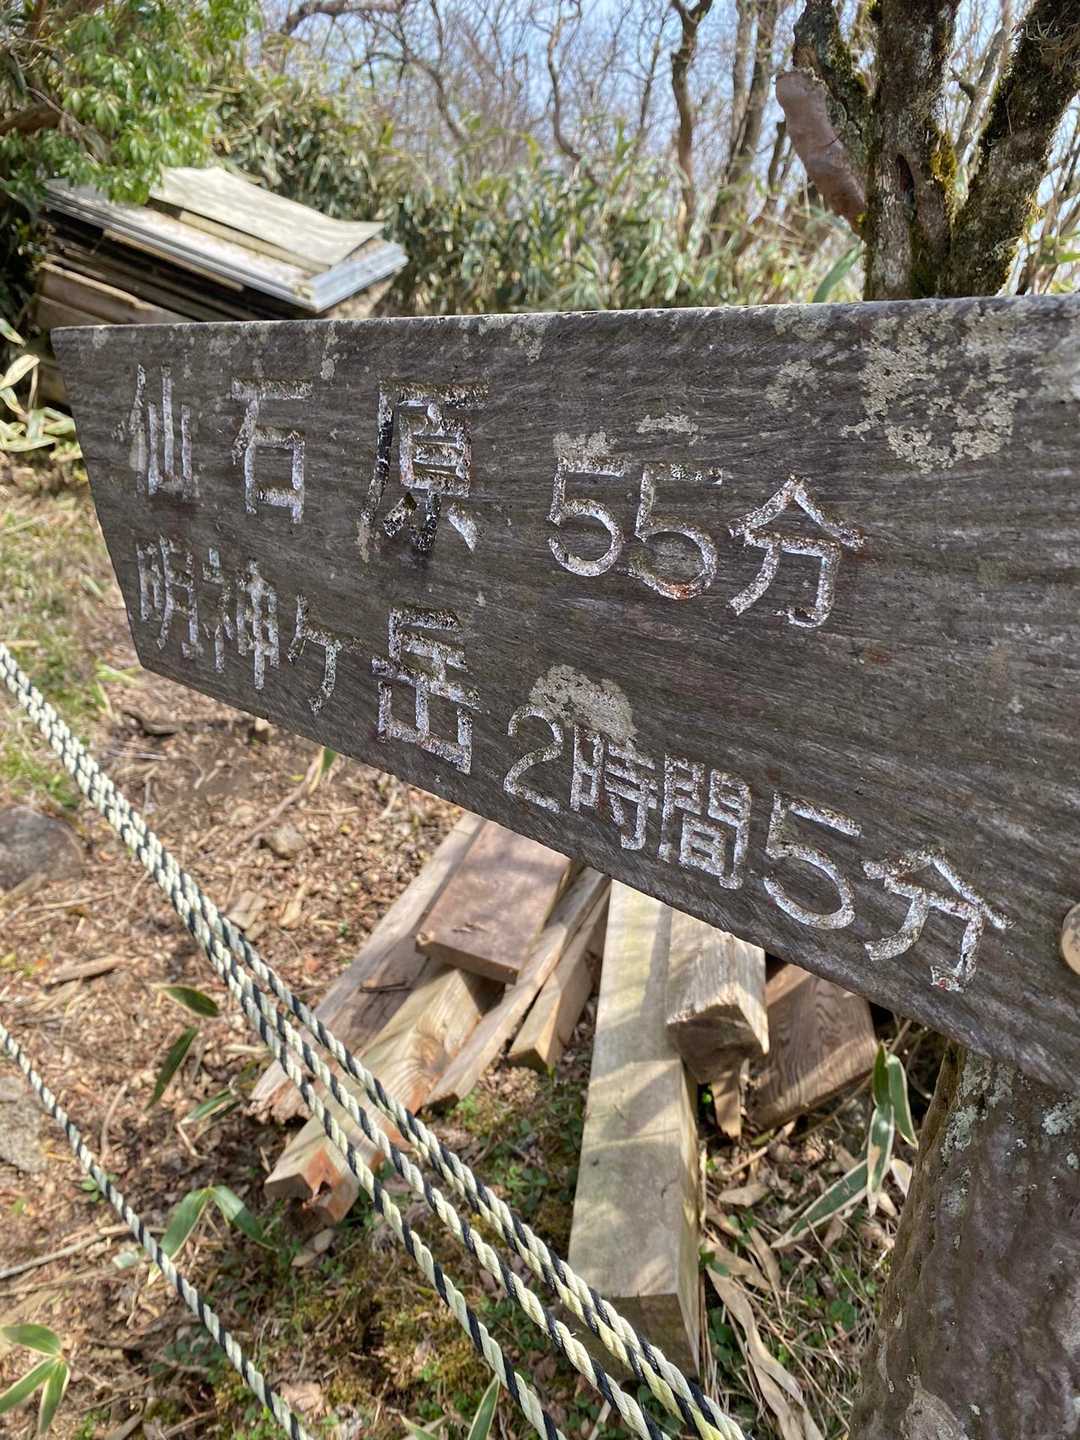 仙石原 55分
明神ケ岳 2時間5分